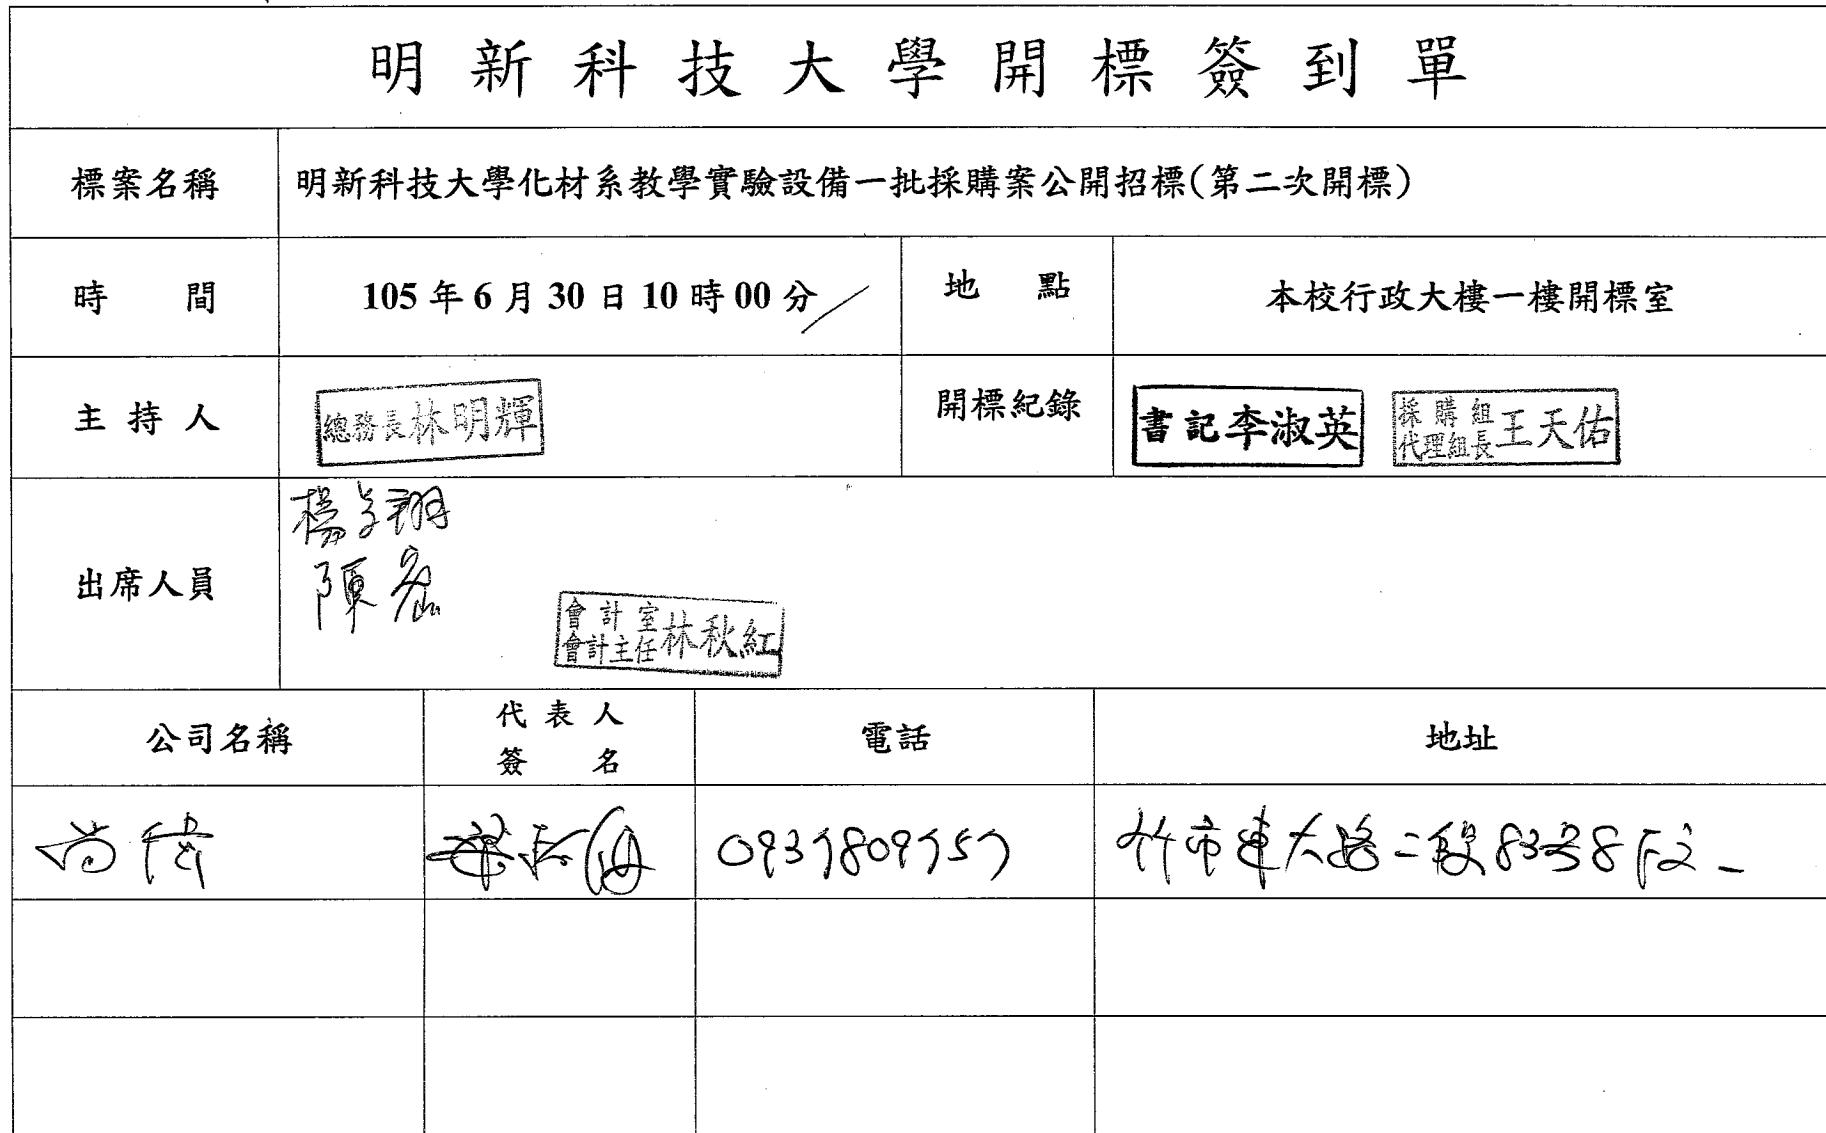 明新科技大學開標簽到單
標案名稱 明新科技大學化材系教學實驗設備一批採購案公開招標(第二次開標)
時間 105年6月30日10時00分 地點 本校行政大樓一樓開標室
主持人 總務長林明輝 開標紀錄 書記李淑英 採購組代理組長王天佑
出席人員
陳
會計室會計主任林秋紅
公司名稱 代表人簽名 電話 地址
尚偉 竹市東大路二段83號8F之一